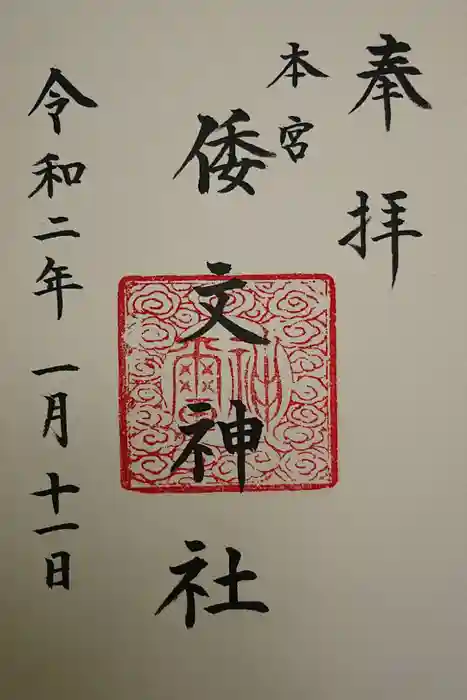 奉拝
本宮
倭文神社
令和二年一月十一日